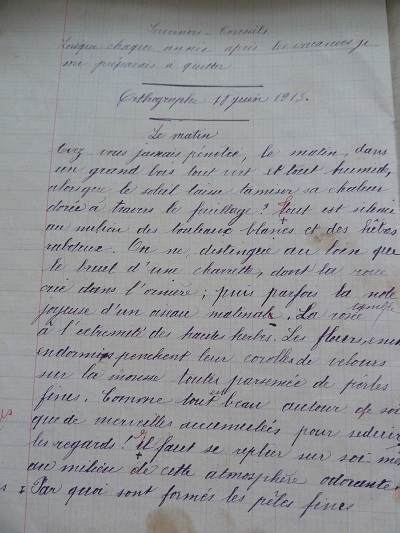 Souvenirs - Conseils
Lorsque chaque année après les vacances je
me préparais à quitter
Orthographe 18 juin 1913.
Le matin
Avez-vous jamais pénétré, le matin, dans
un grand bois tout vert et tout humide,
alors que le soleil laisse tamiser sa chaleur
dorée à travers le feuillage? Tout est silence
au milieu des bouleaux blancs et des hêtres
raboteux. On ne distingue au loin que
le bruit d'une charrette, dont la roue
crie dans l'ornière; puis parfois la note
joyeuse d'un oiseau matinal. La rosée tremble
à l'extrémité des hautes herbes. Les fleurs, encor
endormies penchent leur corolles de velours
sur la mousse toutes parsemée de perles
fines. Comme tout est beau autour de soi
que de merveilles accumulées pour séduire
les regards! Il faut se replier sur soi-mê
au milieu de cette atmosphère odorante.
Par quoi sont formés les perles fines